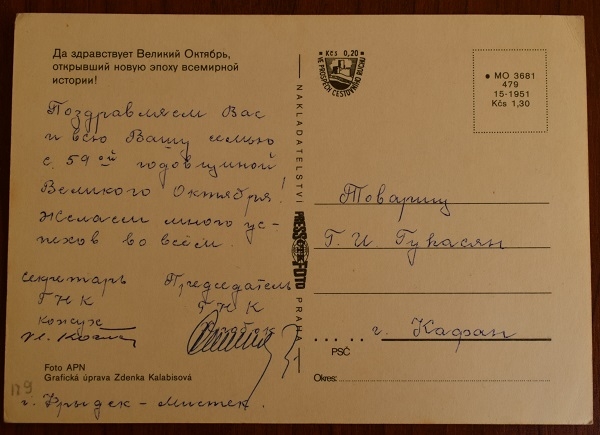 Да здравствует Великий Октябрь,
открывший новую эпоху всемирной
истории!
Поздравляем Вас
и всю Вашу семью
с 59ой годовщиной
Великого Октября!
Желаем много ус-
пехов во всём.
секретарь
ГНК
кожух
Председатель
ГНК
Foto APN
Grafická úprava Zdenka Kalabisová
г. Фрыдек-Мистек.
NAKLADATELSTVÍ
PRESSFOTO
PRAHA
Kčs 0,20
VE PROSPĚCH CESTOVNÍHO RUCHU
• MO 3681
479
15-1951
Kčs 1,30
Товарищ
Г. И. Гукасян
г. Кафан
PSČ
Okres: